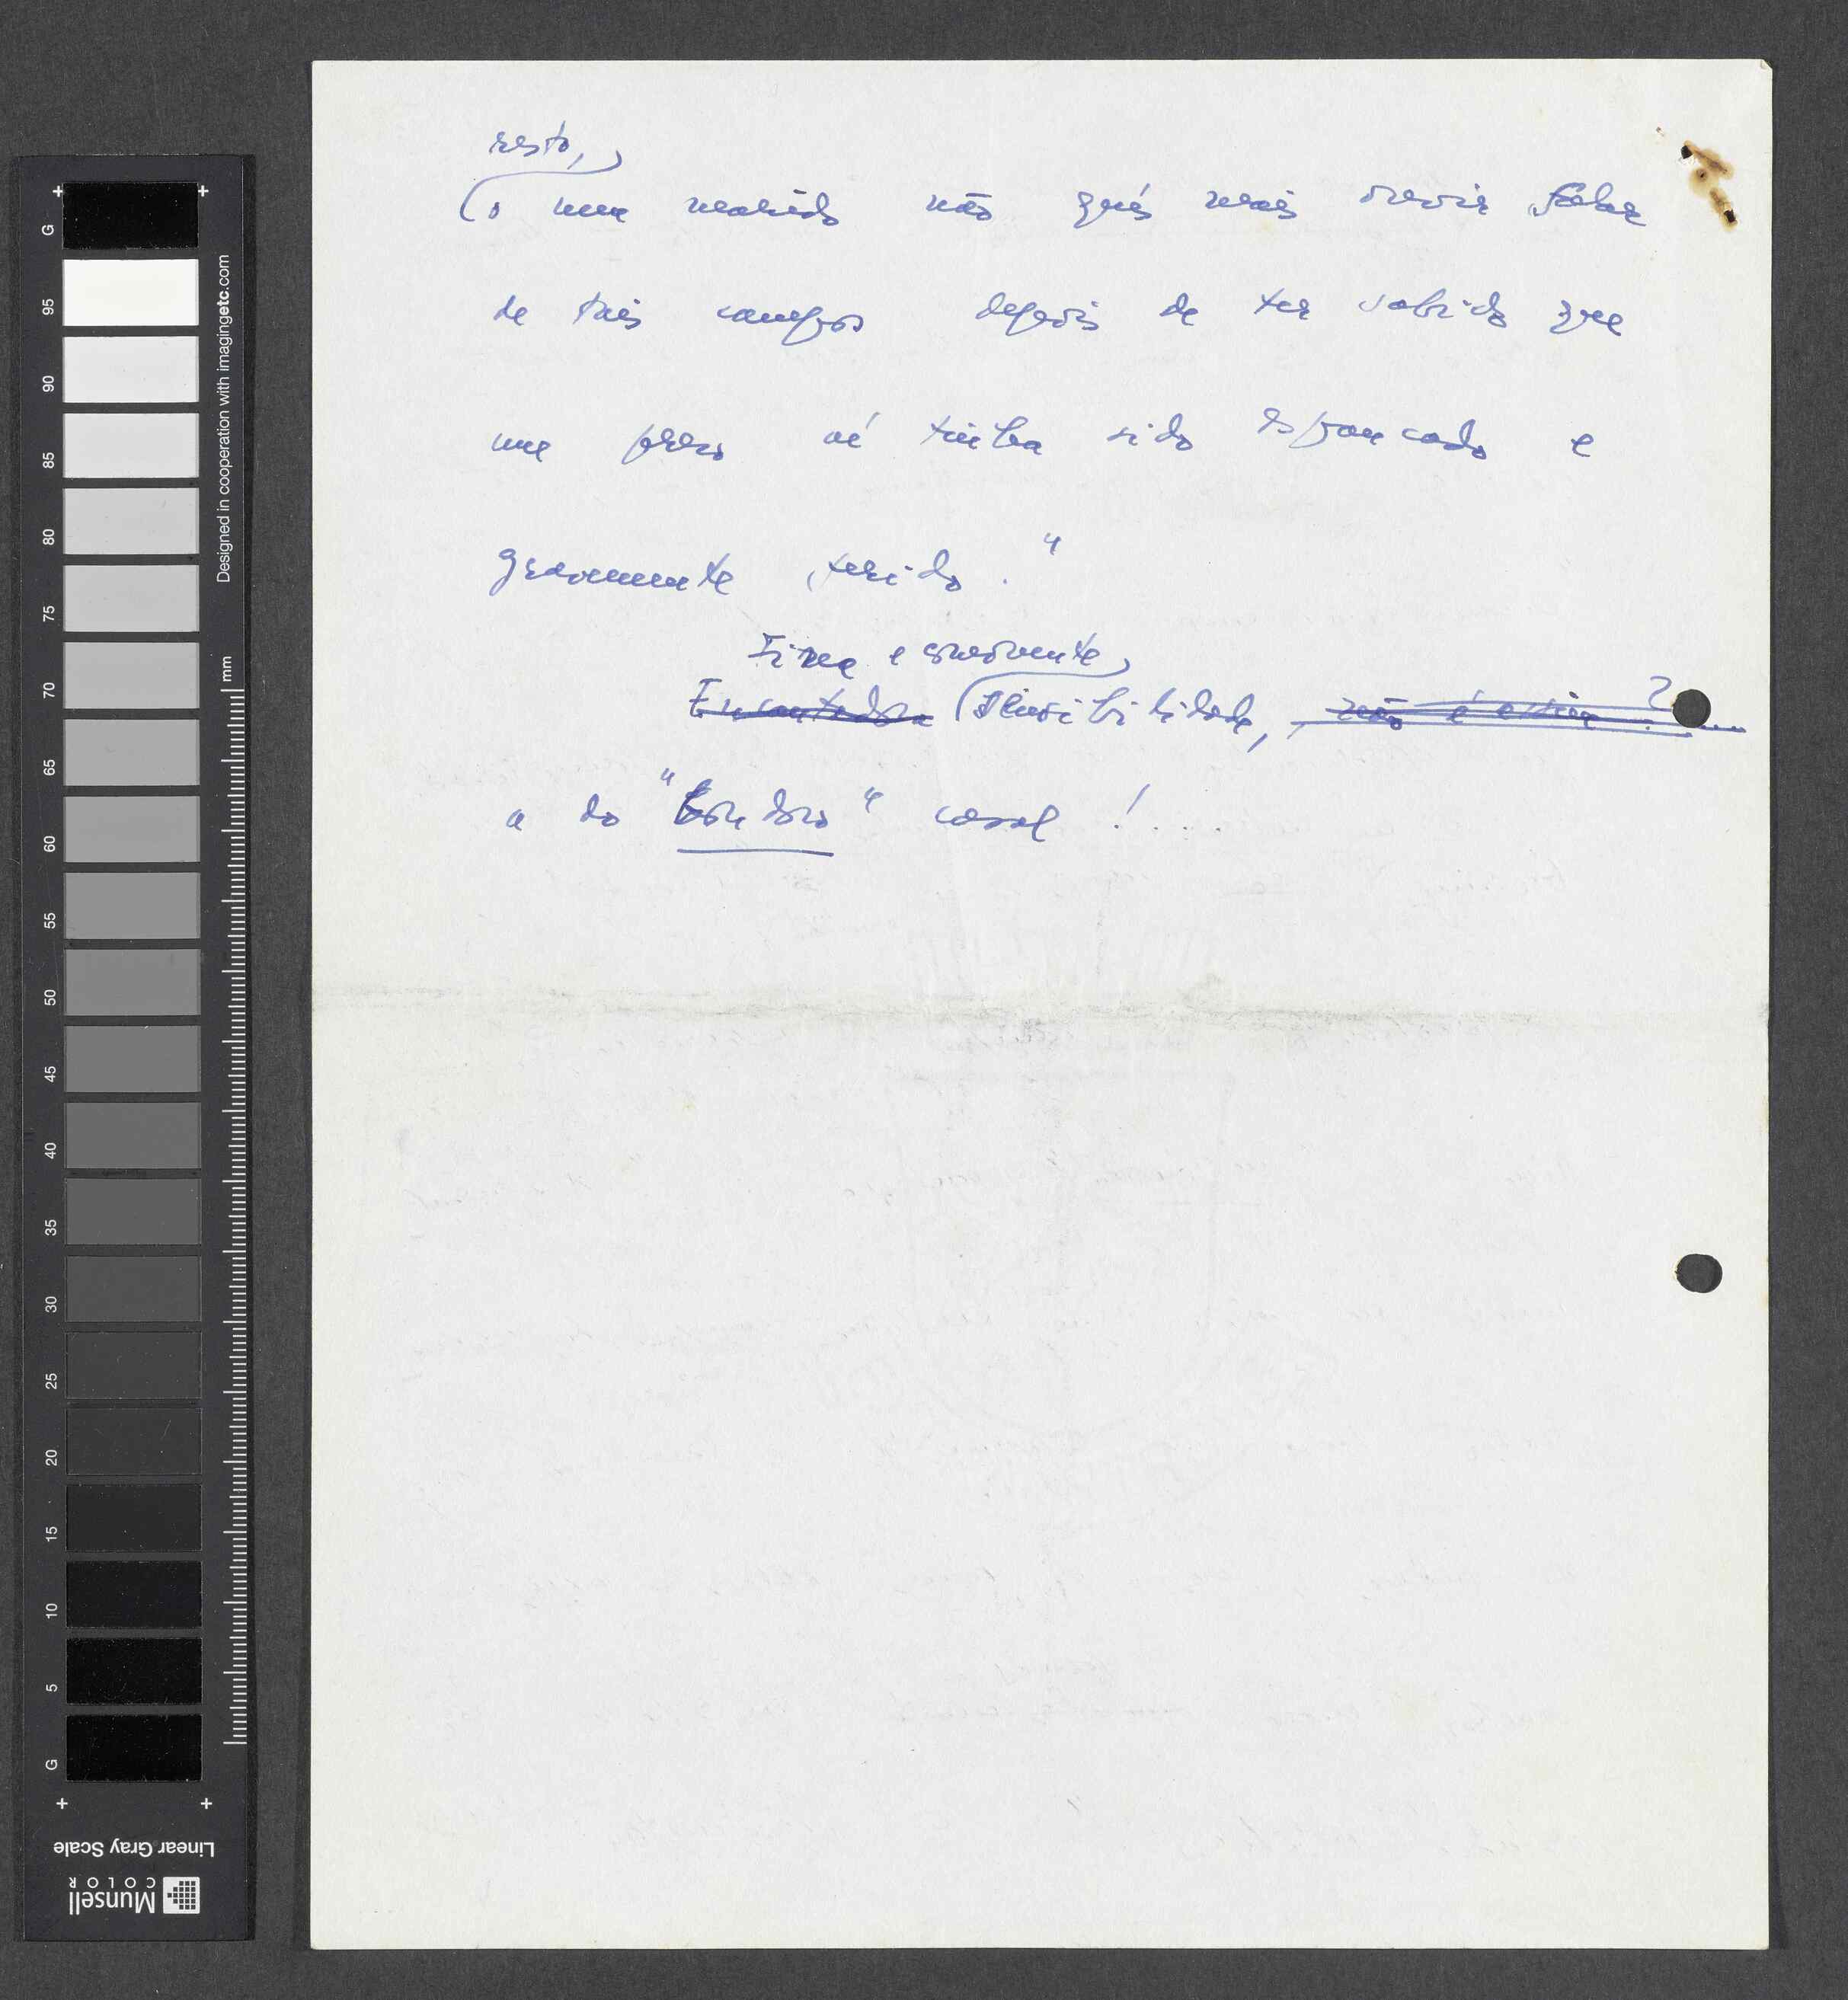 resto,
o meu marido não quis mais ouvir falar
de tais campos depois de ter sabido que
um preso aí tinha sido espancado e
gravemente ferido."
Fina e comovente
Encantadora sensibilidade, não é assim?...
a do "bondoso" casal!...
G
95
90
85
80
75
70
65
60
55
50
45
40
35
30
25
20
15
10
5
G
Designed in cooperation with imagingetc.com
mm
Linear Gray Scale
Munsell
COLOR